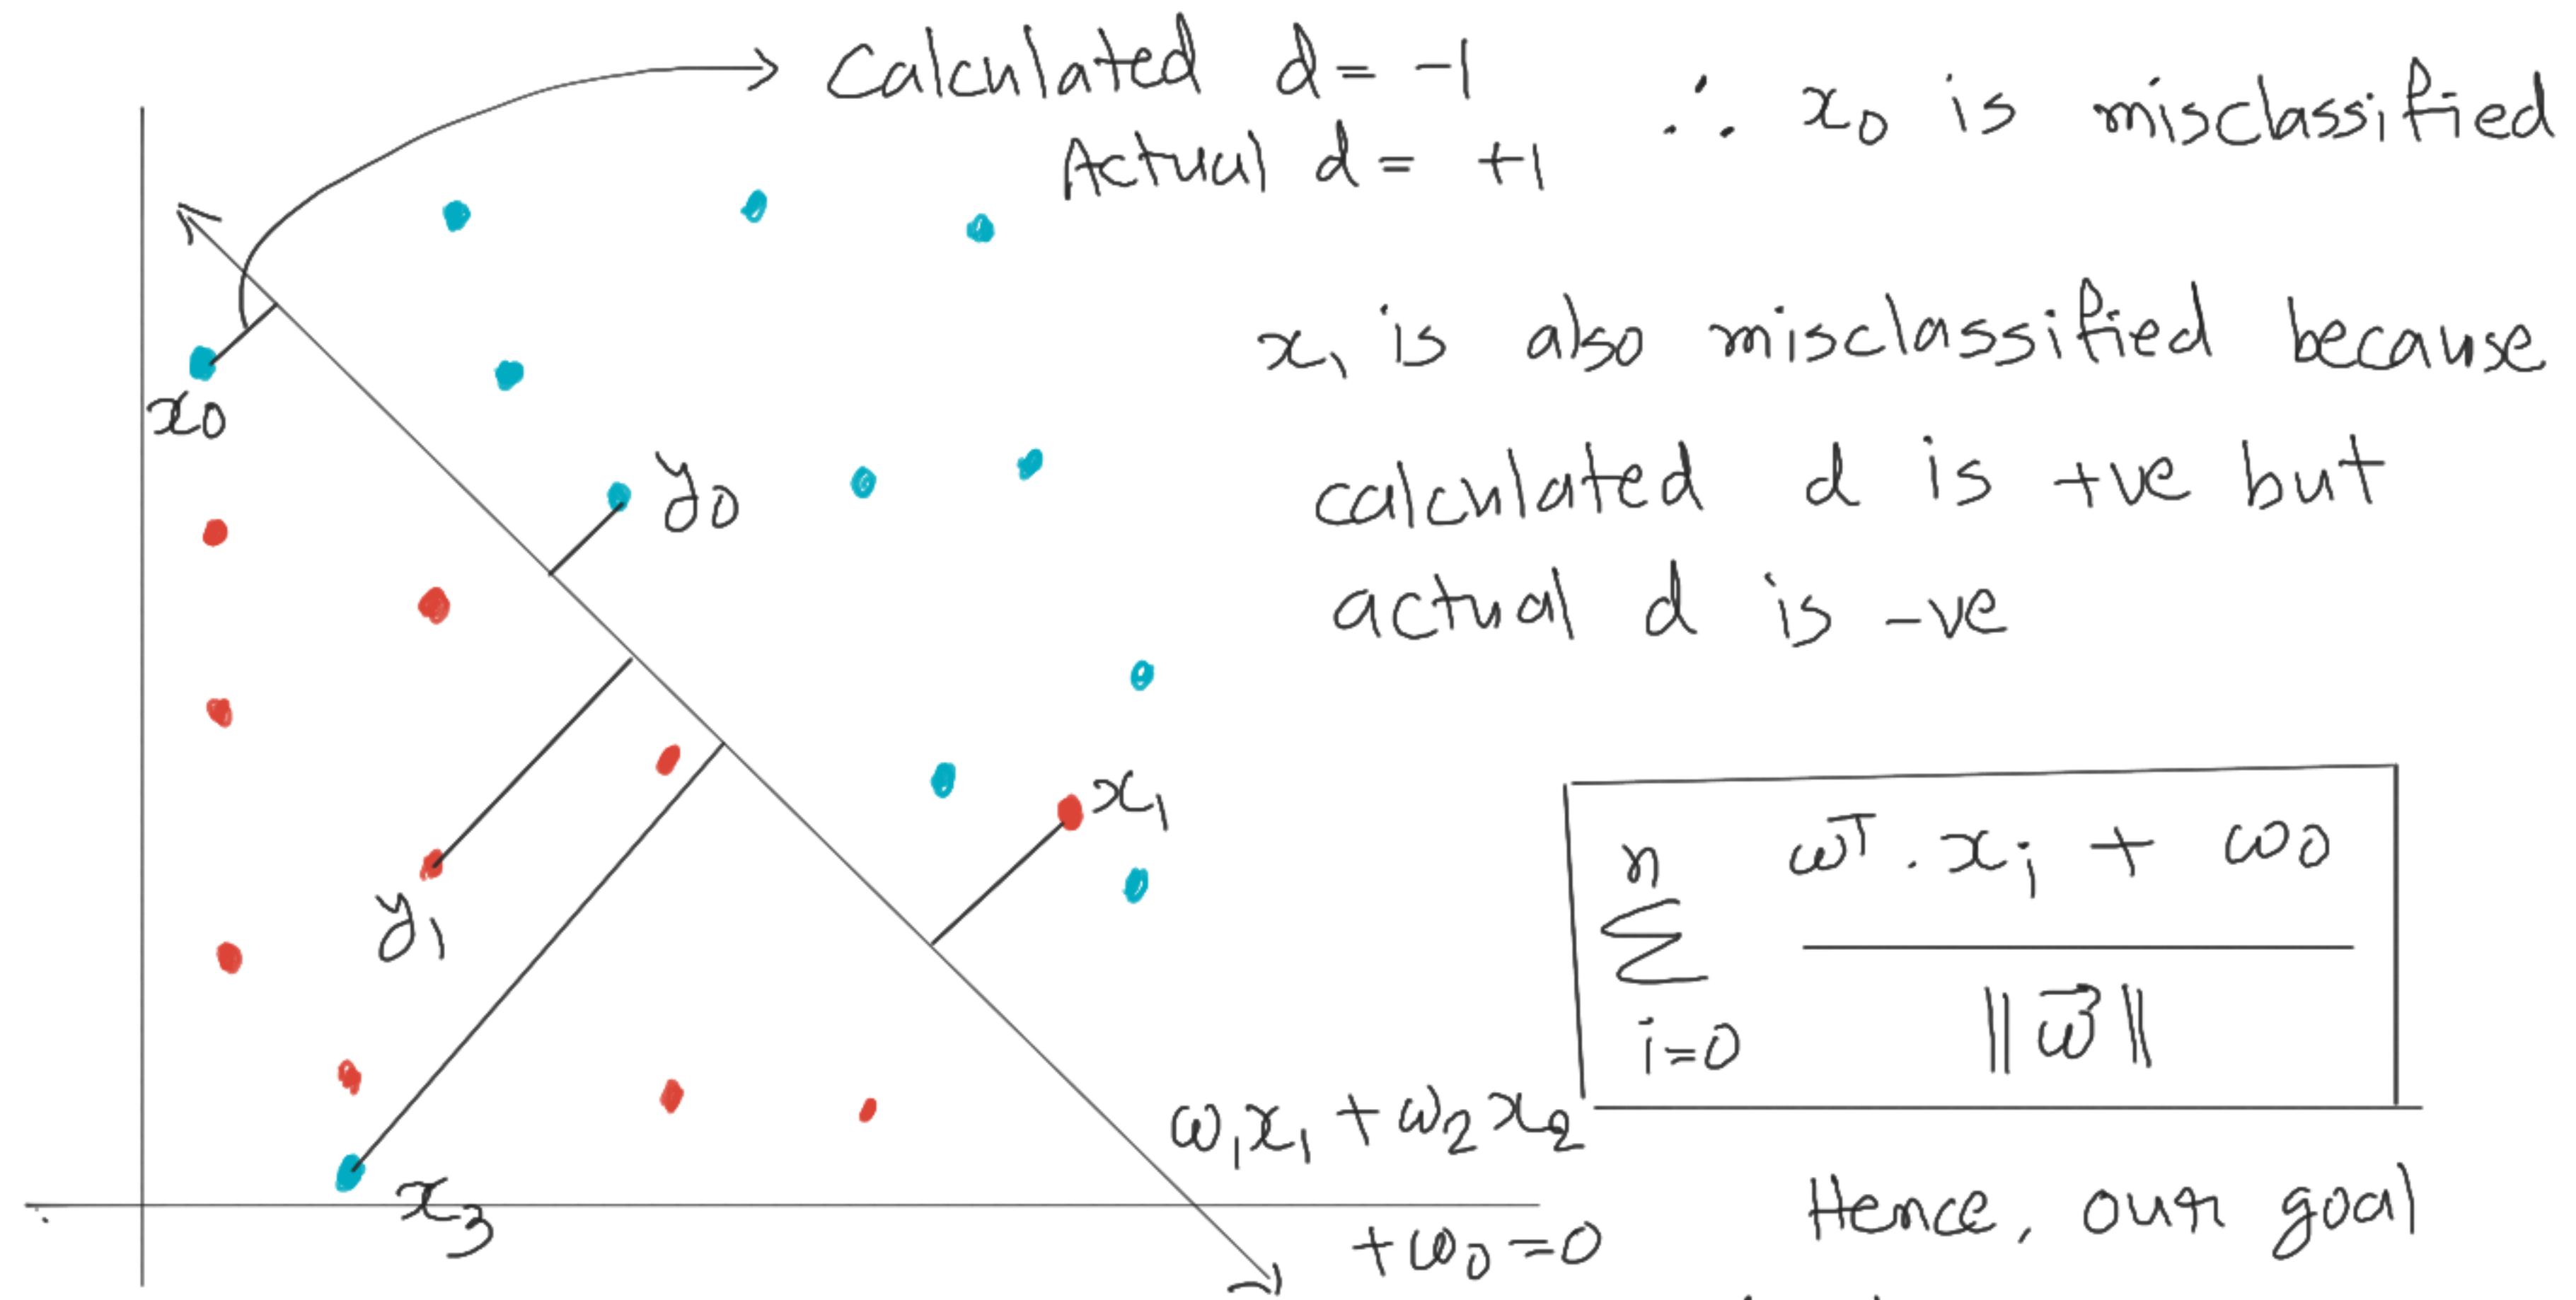 Calculated d = -1
Actual d = +1
∴ x₀ is misclassified
x₀
y₀
x₁ is also misclassified because
calculated d is +ve but
actual d is -ve
x₁
y₁
x₃
n
∑
i=0
wᵀ. xᵢ + w₀
‖w⃗‖
w₁x₁ + w₂x₂
+w₀=0
Hence, our goal